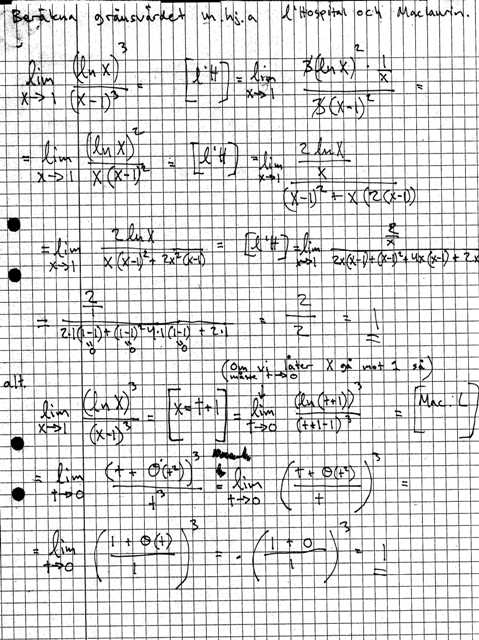 Beräkna gränsvärdet m.hj.a l'Hospital och Maclaurin.
lim x→1 (ln x)^3/(x-1)^3 = [l'H] = lim x→1 (3(ln x)^2 · 1/x)/(3(x-1)^2) =
= lim x→1 (ln x)^2/(x(x-1)^2) = [l'H] = lim x→1 (2 ln x/x)/((x-1)^2 + x(2(x-1))
= lim x→1 2 ln x/(x(x-1)^2 + 2x^2(x-1)) = [l'H] = lim x→1 (2/x)/(2x(x-1) + (x-1)^2 + 4x(x-1) + 2x
= (2/1)/(2·1(1-1) + (1-1)^2 4·1(1-1) + 2·1) = 2/2 = 1
(Om vi låter x gå mot 1 så
alt. måste t→0)
lim x→1 (ln x)^3/(x-1)^3 = [x = t+1] = lim t→0 (ln(t+1))^3/(t+1-1)^3 = [Mac: L]
= lim t→0 (t + O(t^2))^3/t^3 = lim t→0 ((t + O(t^2))/t)^3 =
= lim t→0 ((1 + O(t))/1)^3 = ((1 + 0)/1)^3 = 1